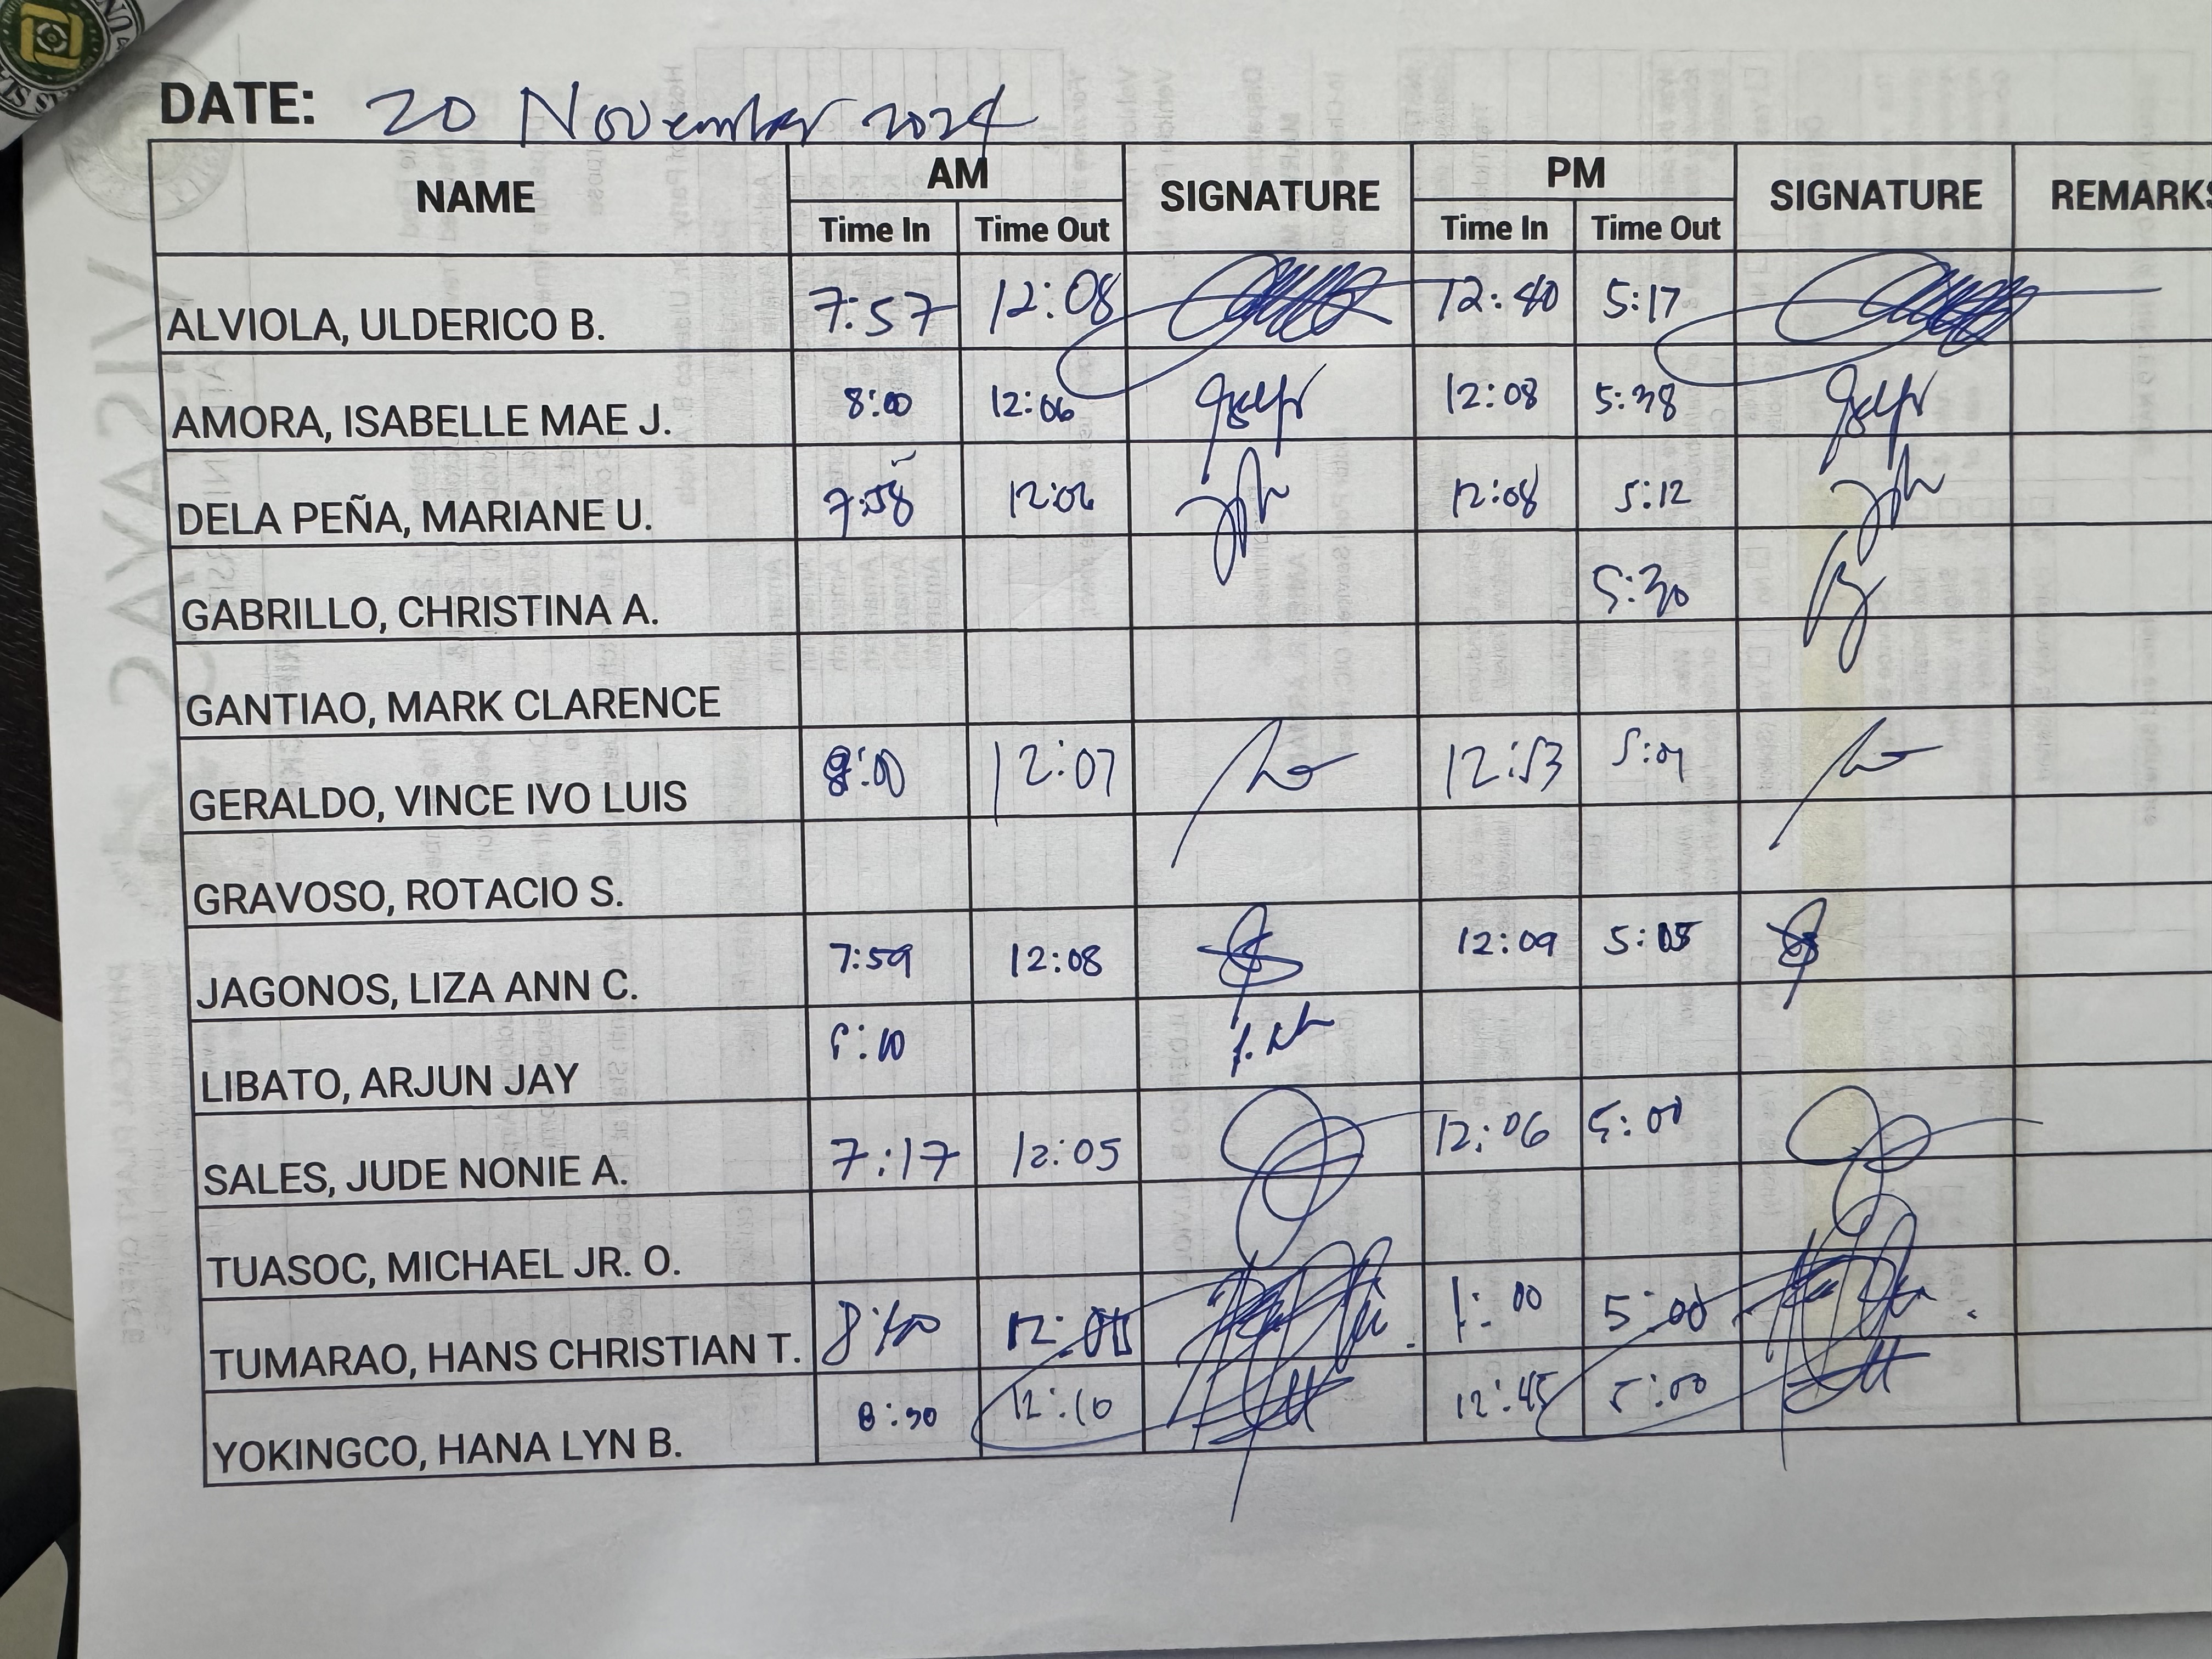 DATE: 20 November 2024
NAME AM SIGNATURE PM SIGNATURE REMARKS
Time In Time Out Time In Time Out
ALVIOLA, ULDERICO B. 7:57 12:08 12:40 5:17
AMORA, ISABELLE MAE J. 8:00 12:06 12:08 5:38
DELA PEÑA, MARIANE U. 7:58 12:06 12:08 5:12
GABRILLO, CHRISTINA A. 5:30
GANTIAO, MARK CLARENCE
GERALDO, VINCE IVO LUIS 8:00 12:07 12:53
GRAVOSO, ROTACIO S.
JAGONOS, LIZA ANN C. 7:59 12:08 12:09 5:05
LIBATO, ARJUN JAY
SALES, JUDE NONIE A. 7:17 12:05 12:06 5:00
TUASOC, MICHAEL JR. O.
TUMARAO, HANS CHRISTIAN T. 1:00 5:00
YOKINGCO, HANA LYN B. 8:30 12:10 12:45 5:00